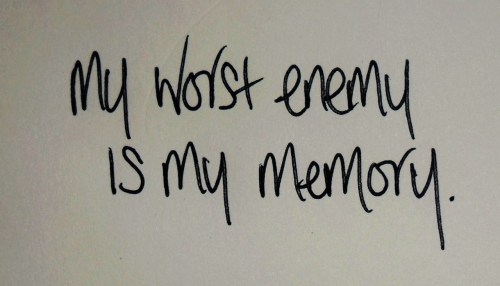 my worst enemy
is my memory.